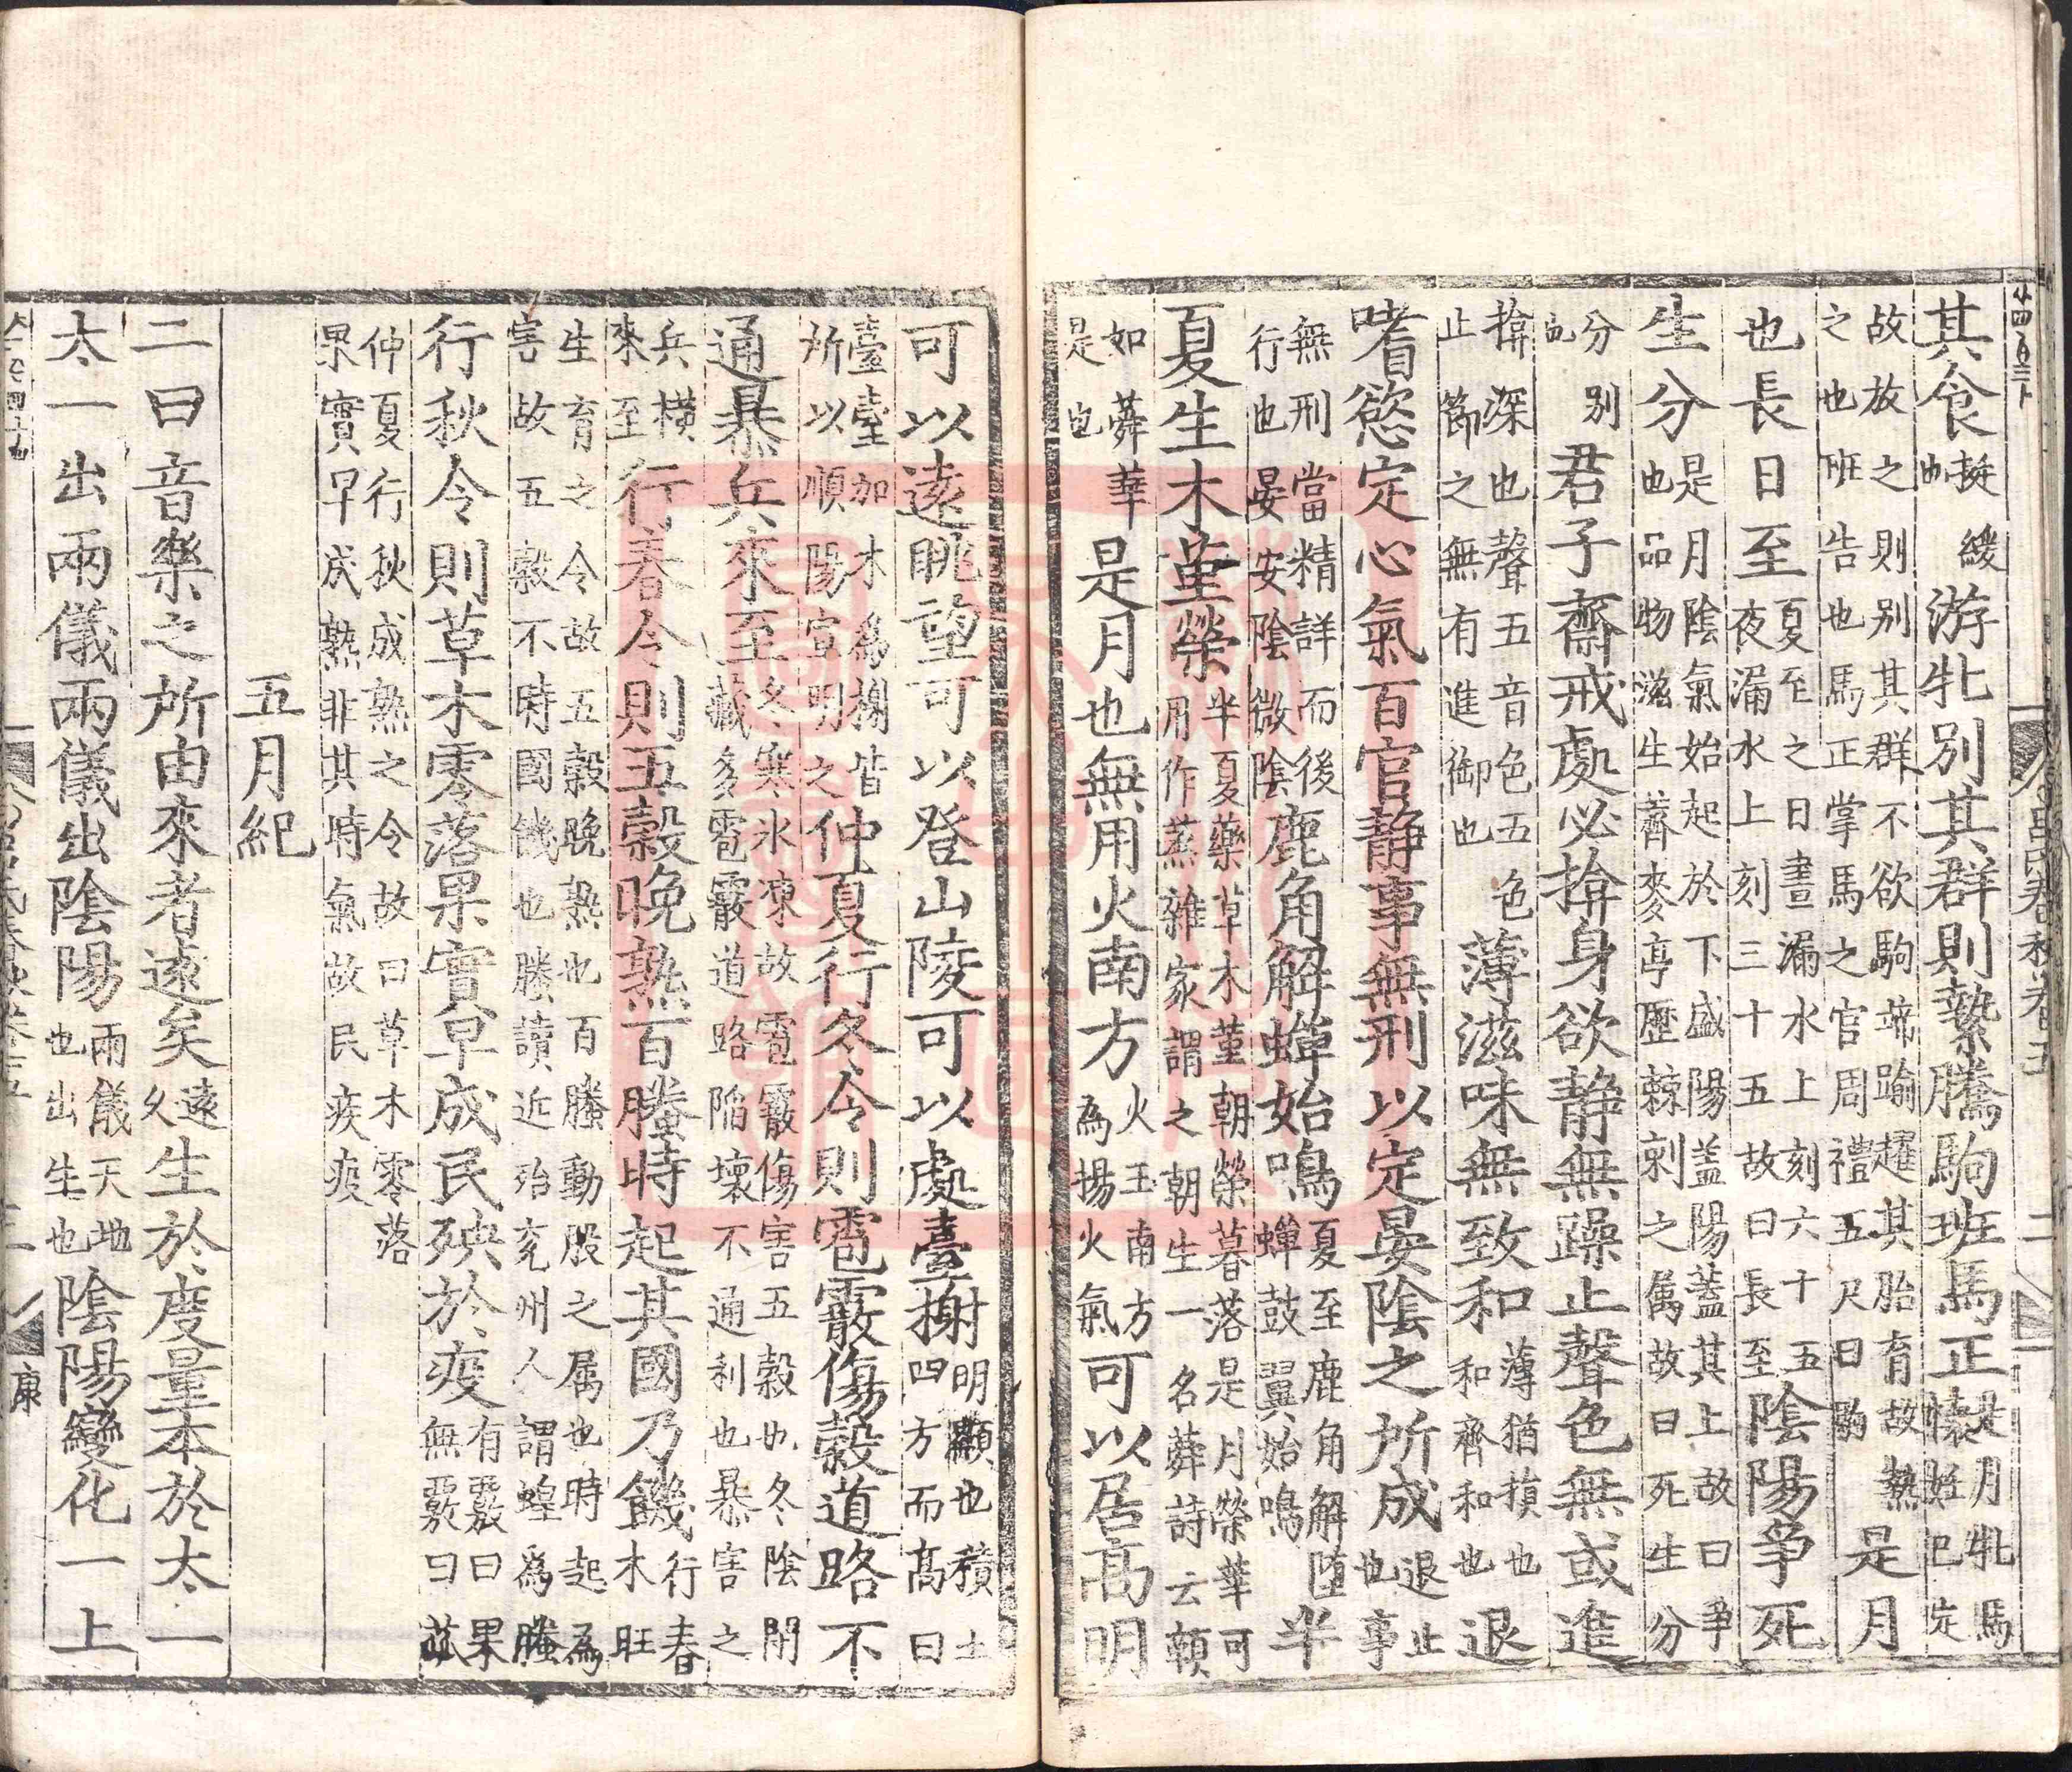 其食挺緩也游牝別其群則縶騰駒班馬正是月牝馬懷妊已定
故放之則別其群不欲駒蹄踰趯其胎育故熱之也班告也馬正掌馬之官周禮五尺曰駒是月
也長日至夏至之日晝漏水上刻六十五夜漏水上刻三十五故曰長至陰陽爭死
生分是月陰氣始起於下盛陽蓋陽蓋其上故曰爭也品物滋生薺麥亭歷棘刺之属故曰死生分
分別君子齋戒處必揜身欲静無躁止聲色無或進
揜深也聲五音色五色止節之無有進御也薄滋味無致和薄猶損也和齊和也退
嗜慾定心氣百官静事無刑以定晏陰之所成退止也事
無刑當精詳而後行也晏安陰微陰鹿角解蟬始鳴夏至鹿角解堕蟬鼓翼始鳴半
夏生木堇榮半夏藥草木堇朝榮暮落是月榮華可用作蒸雜家謂之朝生一名蕣詩云顏
如蕣華是也是月也無用火南方火王南方為揚火氣可以居高明
可以遠眺望可以登山陵可以處臺榭明顯也積土四方而高曰
臺臺加木為榭皆所以順陽宣明之仲夏行冬令則雹霰傷穀道路不
通暴兵來至冬寒氷凍故雹霰傷害五穀也冬陰閉藏多雹霰道路陷壞不通利也暴害之
兵横來至行春令則五穀晚熟百螣時起其國乃饑行春木旺
生育之令故五穀晚熟也百螣動股之属也時起為害故五穀不時國饑也螣讀近殆兖州人謂蝗爲螣
行秋令則草木零落果實早成民殃於疫有覈曰果無覈曰蓏
仲夏行秋成熟之令故曰草木零落果實早成熟非其時氣故民疾疫
五月紀
二曰音樂之所由來者遠矣遠久生於度量本於太一
太一出兩儀兩儀出陰陽兩儀天地也出生也陰陽變化一上
呂氏春秋卷五
二
康